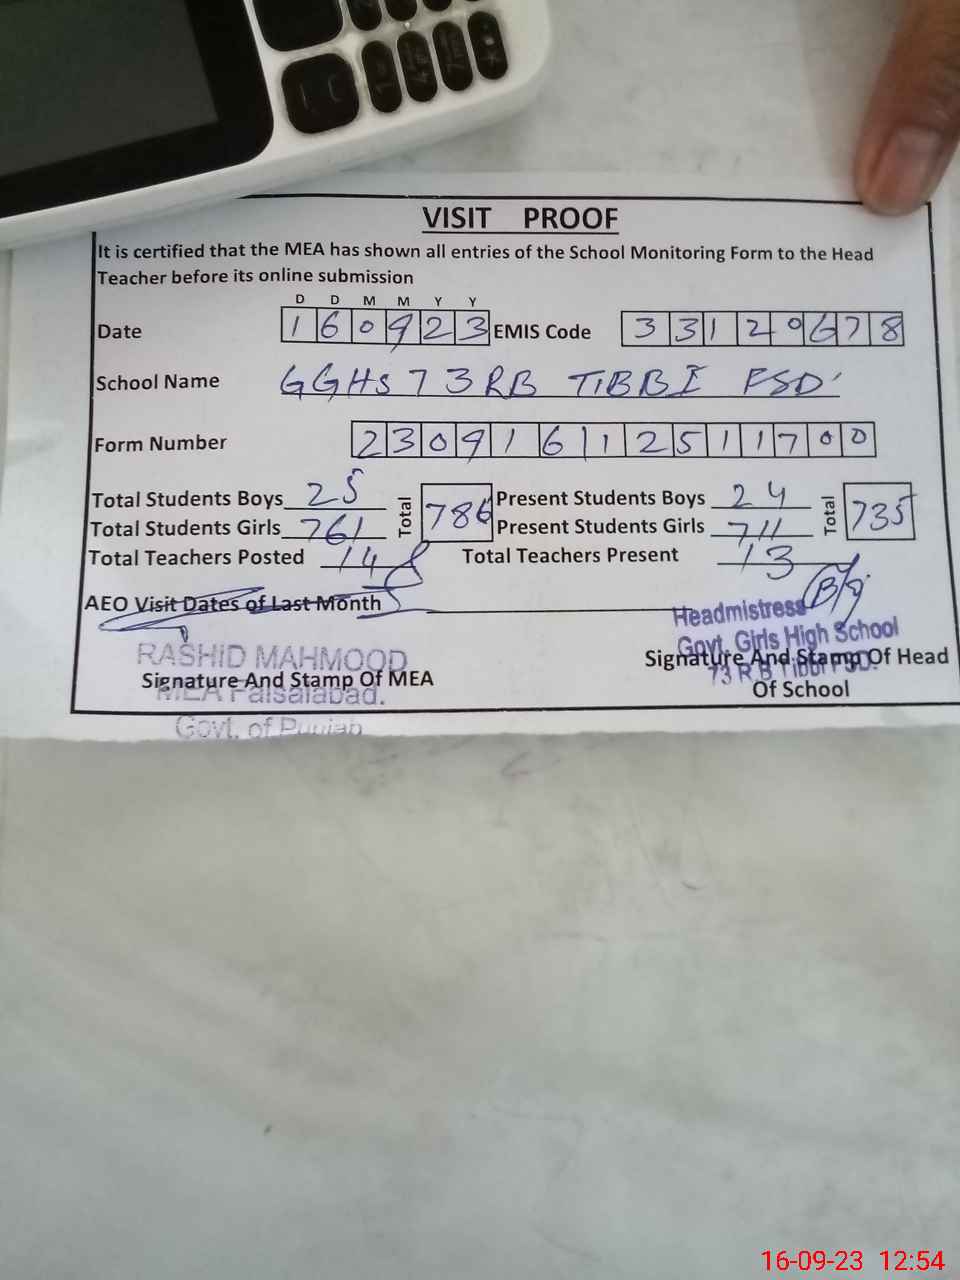 VISIT PROOF
It is certified that the MEA has shown all entries of the School Monitoring Form to the Head
Teacher before its online submission
D D M M Y Y
Date 1 6 0 9 2 3 EMIS Code 3 3 1 2 0 6 7 8
School Name GGHS 73 RB TIBBI FSD
Form Number 2 3 0 9 1 6 1 1 2 5 1 1 7 0 0
Total Students Boys 25 Total 786 Present Students Boys 24 Total 735
Total Students Girls 761 Present Students Girls 711
Total Teachers Posted 14 Total Teachers Present 13
AEO Visit Dates of Last Month
Headmistress
Govt. Girls High School
73 R.B Tibbi FSD.
Signature And Stamp Of Head
Of School
RASHID MAHMOOD
Signature And Stamp Of MEA
MEA Faisalabad.
Govt. of Punjab
16-09-23 12:54